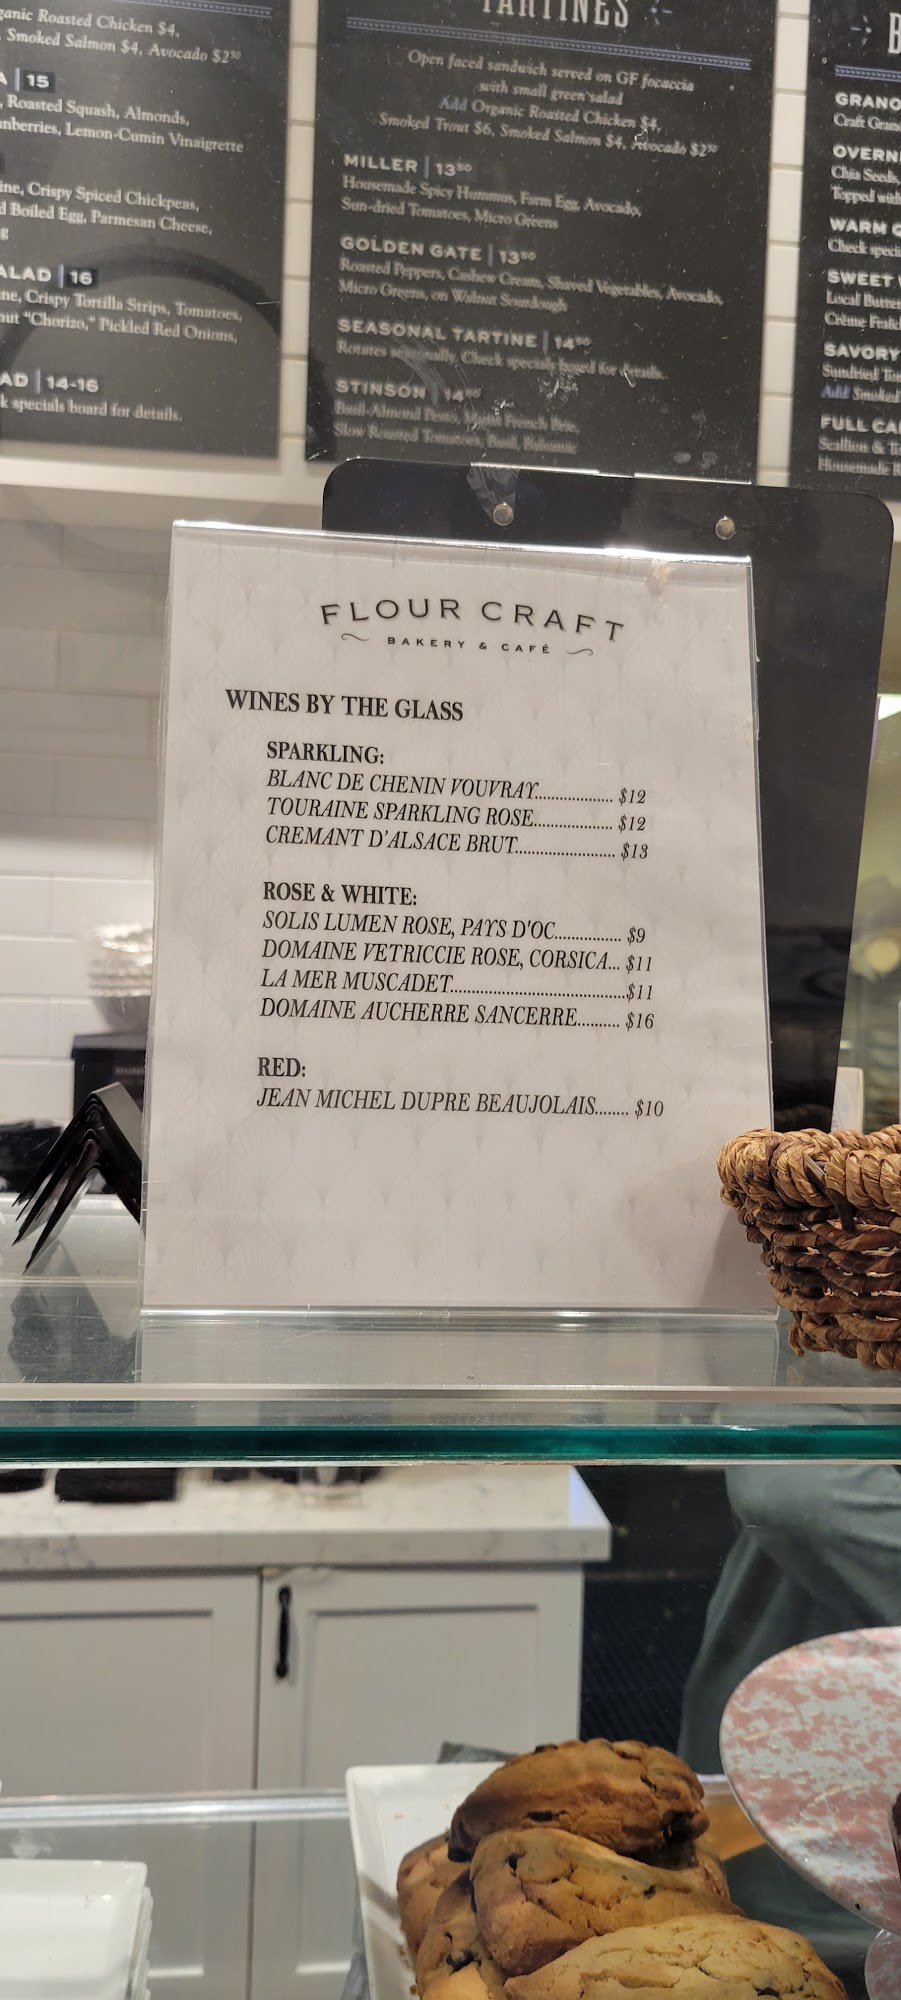 ganic Roasted Chicken $4,
Smoked Salmon $4, Avocado $2⁵⁰
A | 15
, Roasted Squash, Almonds,
nberries, Lemon-Cumin Vinaigrette
ine, Crispy Spiced Chickpeas,
d Boiled Egg, Parmesan Cheese,
g
ALAD | 16
ne, Crispy Tortilla Strips, Tomatoes,
nut "Chorizo," Pickled Red Onions,
AD | 14-16
k specials board for details.
TARTINES
Open faced sandwich served on GF focaccia
with small green salad
Add Organic Roasted Chicken $4,
Smoked Trout $6, Smoked Salmon $4, Avocado $2⁵⁰
MILLER | 13⁵⁰
Housemade Spicy Hummus, Farm Egg, Avocado,
Sun-dried Tomatoes, Micro Greens
GOLDEN GATE | 13⁵⁰
Roasted Peppers, Cashew Cream, Shaved Vegetables, Avocado,
Micro Greens, on Walnut Sourdough
SEASONAL TARTINE | 14⁵⁰
Rotates seasonally. Check specials board for details.
STINSON | 14⁵⁰
Basil-Almond Pesto, French Brie,
Slow Roasted Tomatoes, Basil, Balsamic
B
GRANO
Craft Gran
OVERNI
Chia Seeds,
Topped with
WARM
Check speci
SWEET
Local Butter
Crème Fraîc
SAVORY
Sundried To
Add Smoked
FULL CA
Scallion & T
Housemade
FLOUR CRAFT
BAKERY & CAFÉ
WINES BY THE GLASS
SPARKLING:
BLANC DE CHENIN VOUVRAY.................. $12
TOURAINE SPARKLING ROSE................... $12
CREMANT D'ALSACE BRUT........................ $13
ROSE & WHITE:
SOLIS LUMEN ROSE, PAYS D'OC................ $9
DOMAINE VETRICCIE ROSE, CORSICA... $11
LA MER MUSCADET..........................................$11
DOMAINE AUCHERRE SANCERRE.......... $16
RED:
JEAN MICHEL DUPRE BEAUJOLAIS........ $10